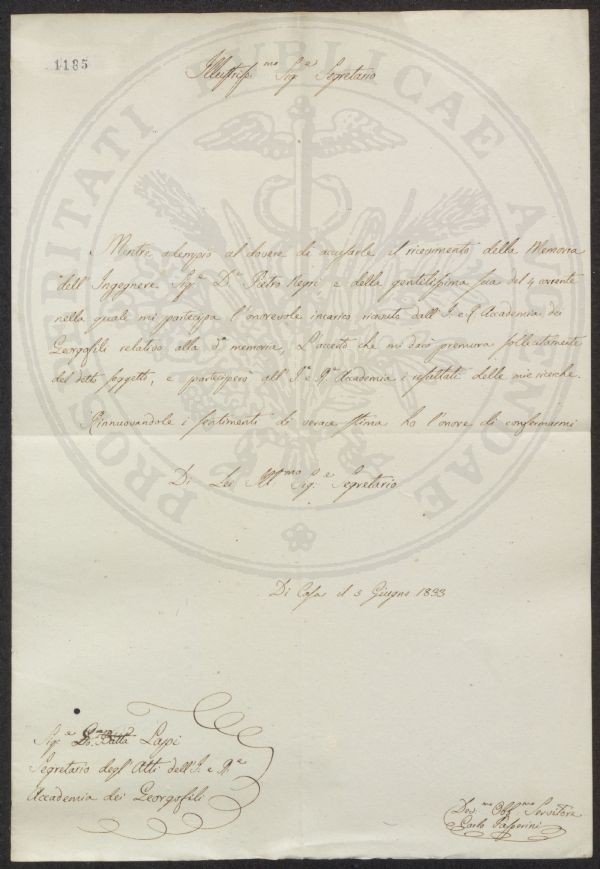 1185
PROSPERITATI PUBLICAE AUGENDAE
Illustriss.mo Sig.e Segretario
Mentre adempio al dovere di accusarle il ricevimento della Memoria
dell'Ingegnere Sig.e D.e Pietro e della gentilissima sua del 4 corrente
nella quale mi partecipa l'onorevole incarico ricevuto dall'I. e R. Accademia dei
Georgofili relativo alla d.a memoria, L'accerto che mi darò premura sollecitamente
del detto soggetto, e parteciperò all'I. e R. Accademia i resultati delle mie ricerche.
Rinnuovandole i sentimenti di verace stima ho l'onore di confermarmi
Di Lei Ill.mo Sig.e Segretario
Di Casa il 5 Giugno 1833
Sig.e Lapi
Segretario degl'Atti dell'I. e R.e
Accademia dei Georgofili
Dev.mo Obb.mo Servitore
Carlo Passerini